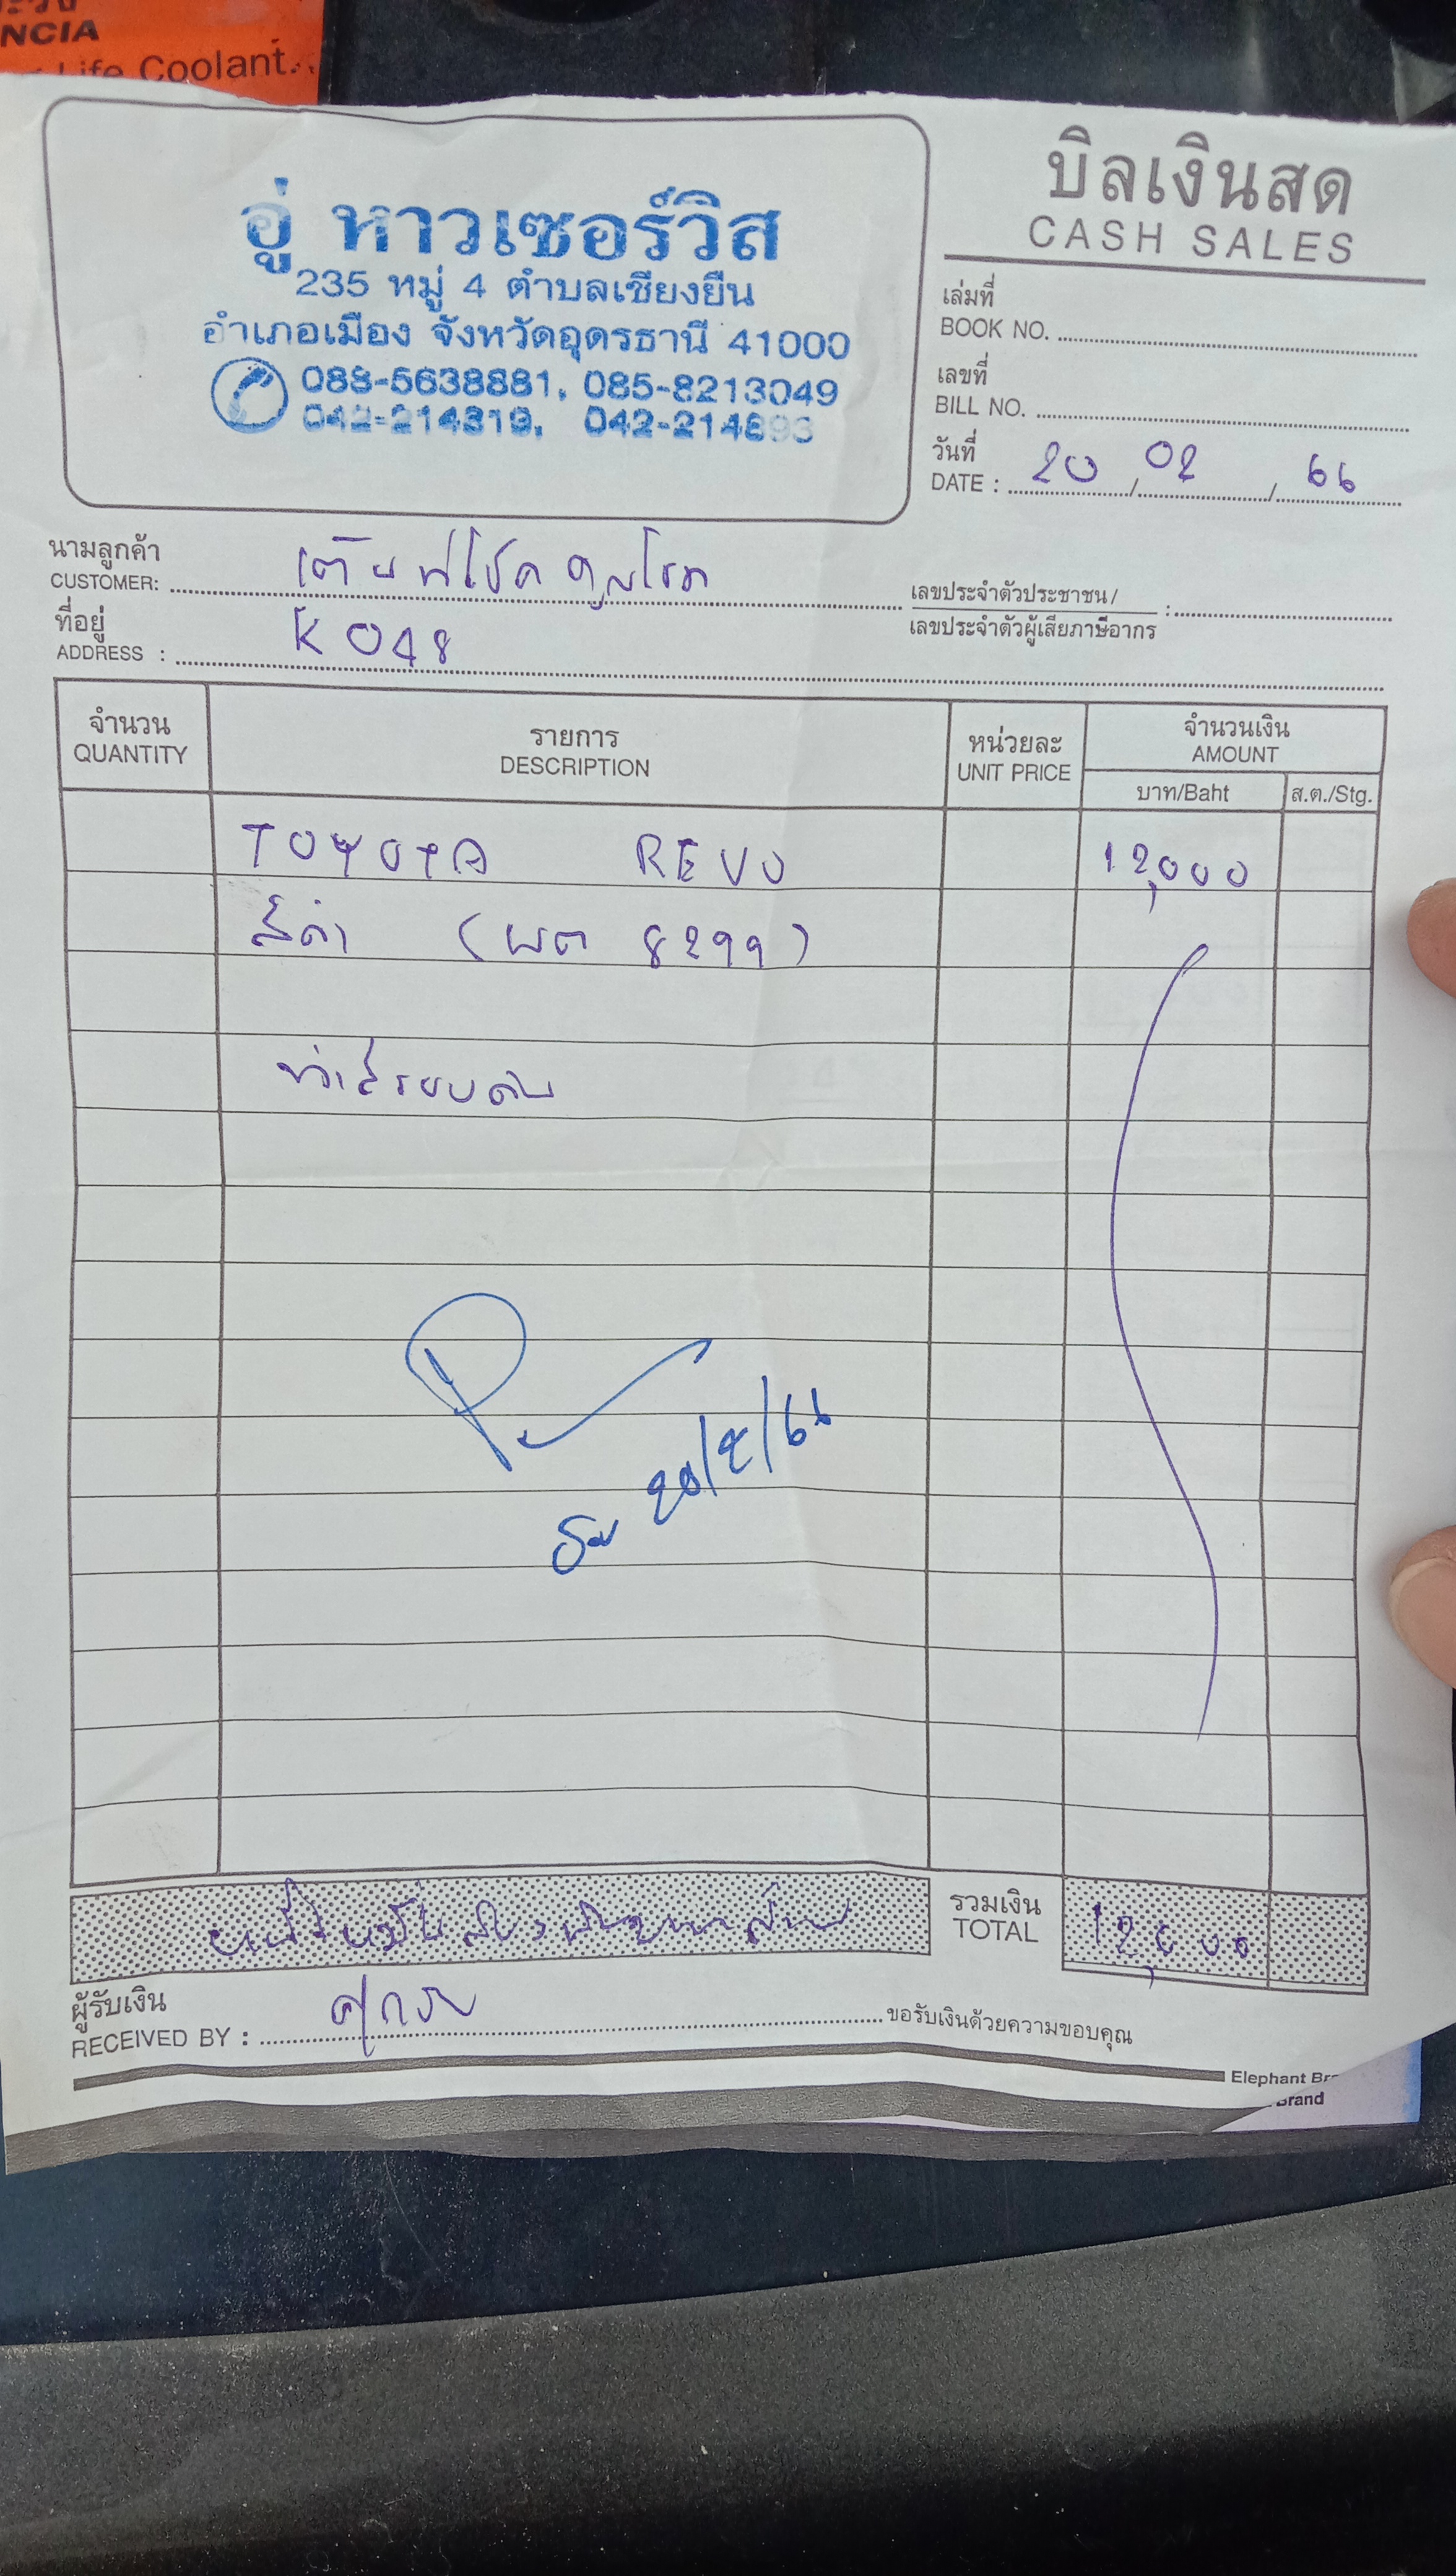 NCIA
Life Coolant.
บิลเงินสด
CASH SALES
อู่ หาวเซอร์วิส
235 หมู่ 4 ตำบลเชียงยืน
อำเภอเมือง จังหวัดอุดรธานี 41000
088-5638881, 085-8213049
042-214319, 042-214893
เล่มที่
BOOK NO.
เลขที่
BILL NO.
วันที่
DATE : 20 / 02 / 66
นามลูกค้า
CUSTOMER:
เลขประจำตัวประชาชน /
เลขประจำตัวผู้เสียภาษีอากร :
ที่อยู่
ADDRESS : K 048
จำนวน รายการ หน่วยละ จำนวนเงิน
QUANTITY DESCRIPTION UNIT PRICE AMOUNT
บาท/Baht ส.ต./Stg.
TOYOTA REVO 12,000
สีดำ (ผต 8299)
ทำสีรอบคัน
20/2/66
รวมเงิน
TOTAL 12,000
ผู้รับเงิน
RECEIVED BY : ขอรับเงินด้วยความขอบคุณ
Elephant Br
Brand